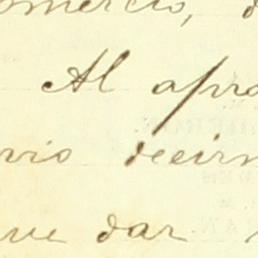 omercio, d
Al apro
vio decirn
ue dar